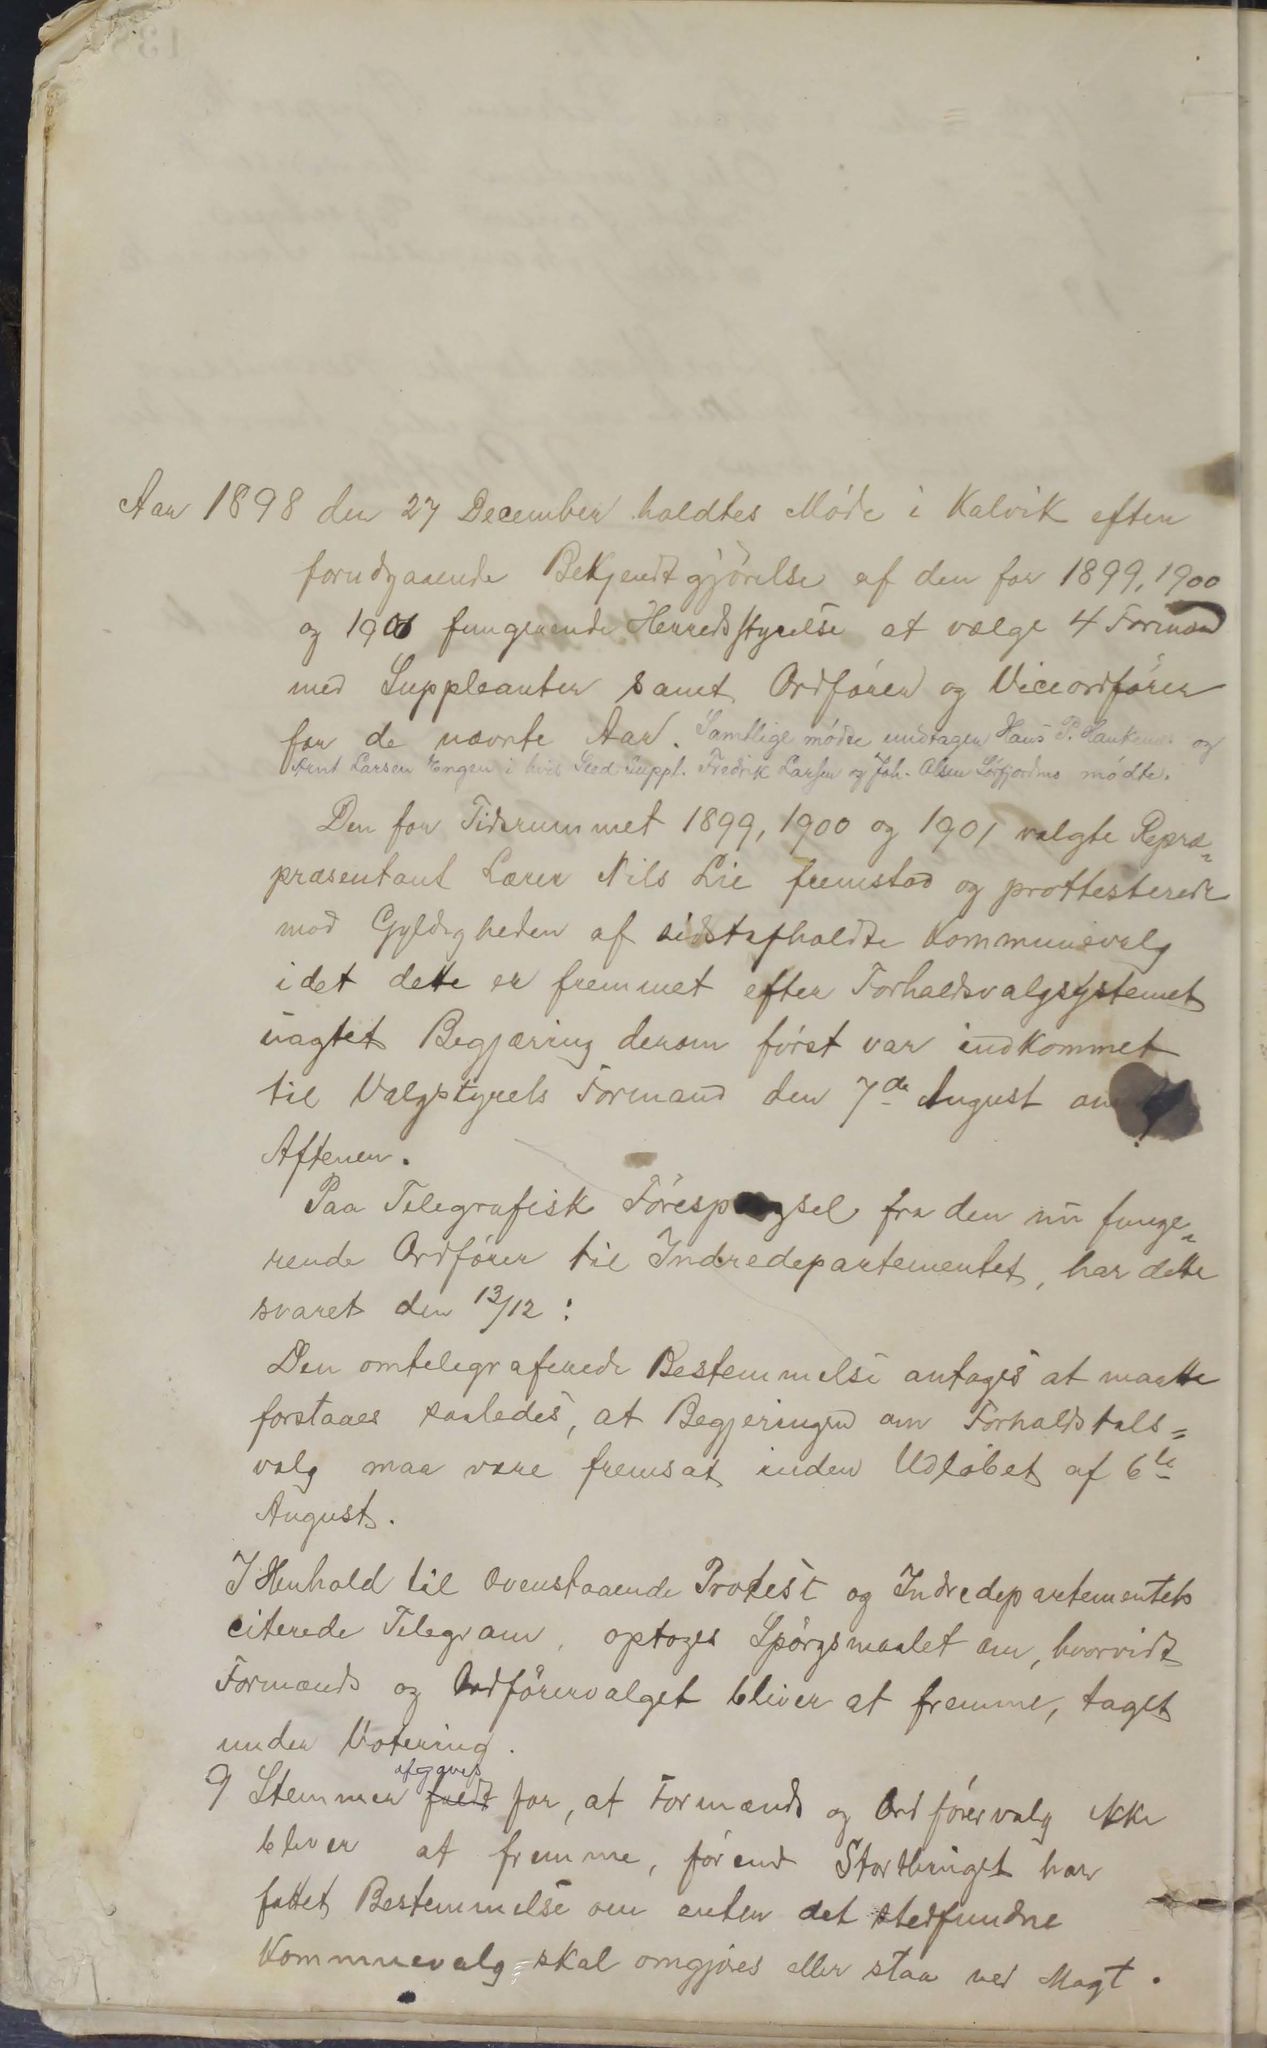 Aar 1898 den 27 December holdtes Møde i Kalvik efter
forudgaaende Bekjendtgjørelse af den for 1899, 1900
og 1901 fungerende Herredsstyrelse at vælge 4 Formænd
med Suppleanter samt Ordfører og Viceordfører
for de nævnte Aar. Samtlige mødte undtagen Hans P. og
Arnt Larsen Engen i hvis Sted Suppl. Fredrik Larsen og Joh. Olsen Sørfjordmo mødte.
Den for Tidsrummet 1899, 1900 og 1901 valgte Repræ=
præsentant Lærer Nils Lie fremstod og prottesterede
mod Gyldigheden af sidstafholdte Kommunevalg
idet dette er fremmet efter Forholdsvalgsystemet
uagtet Begjæring derom først var indkommet
til Valgstyrels Formand den 7de August om
Aftenen.
Paa Telegrafisk Førespørgsel fra den nu funge=
rende Ordfører til Indredepartementet, har dette
svaret den 13/12:
Den omtelegraferede Bestemmelse antages at maatte
forstaaes saaledes, at Begjeringen om Forholdstals=
valg maa være fremsat inden Udløbet af 6te
August.
I Henhold til ovenstaaende Protest og Indredepartementets
citerede Telegram, optoges Spørgsmaalet om, hvorvidt
Formænds og Ordførervalget bliver at fremme, taget
under Votering.
afgaves
9 Stemmer faldt for, at Formænds og Ordførervalg ikke
bliver at fremme, førend Storthinget har
fattet Bestemmelse om enten det stedfundne
Kommnevalg skal omgjøres eller staa ved Magt.